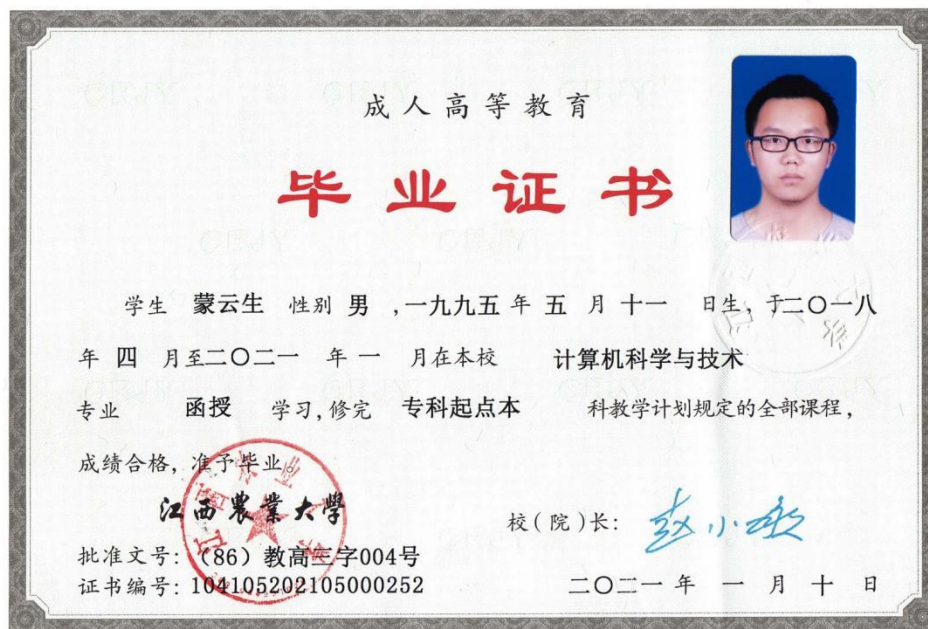 成人高等教育
毕业证书
学生 蒙云生 性别 男 ,一九九五 年 五 月 十一 日生, 于二〇一八
年 四 月至二〇二一 年 一 月在本校 计算机科学与技术
专业 函授 学习, 修完 专科起点本 科教学计划规定的全部课程,
成绩合格, 准予毕业。
江西农业大学
校(院)长: 赵小敏
批准文号: (86) 教高三字004号
证书编号: 104105202105000252
二〇二一 年 一 月 十 日